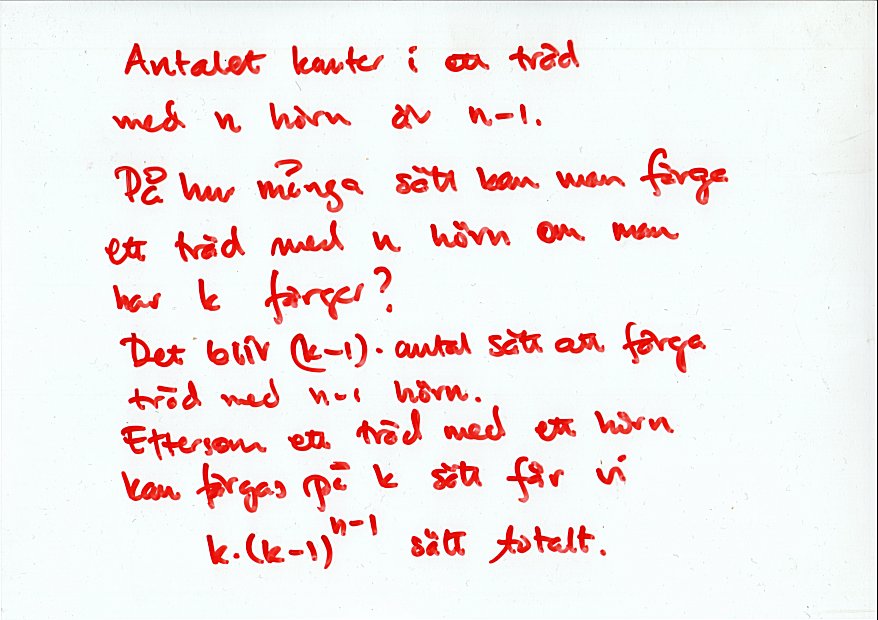 Antalet kanter i ett träd
med n hörn är n-1.
På hur många sätt kan man färga
ett träd med n hörn om man
har k färger?
Det blir (k-1)· antal sätt att färga
träd med n-1 hörn.
Eftersom ett träd med ett hörn
kan färgas på k sätt får vi
k·(k-1)^{n-1} sätt totalt.